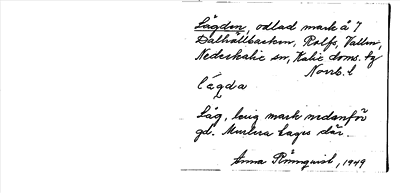 Lågden, odlad mark å 7
Dalhällbacken, Rolfs, Vallen,
Nederkalix sn, Kalix doms. tg
Norrb. l
lágda
Låg, leig mark nedanför
gd. Murlera lages där.
Anna Rönnquist, 1949